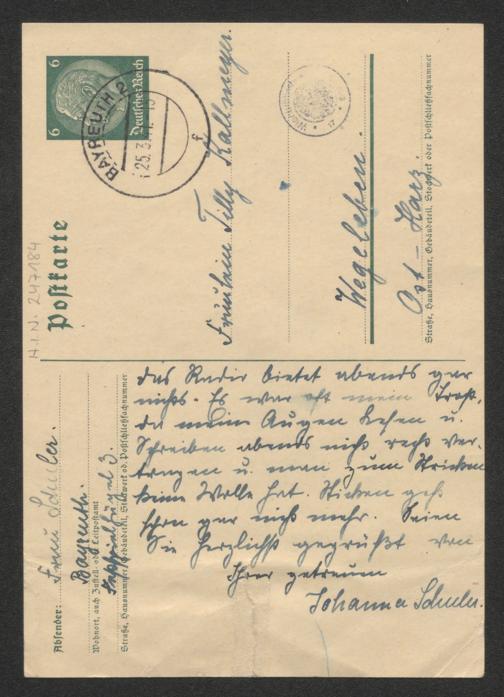 6
6
Deutsches Reich
BAYREUTH 2
25.3.
Postkarte
Fräulein Tilly Kallmeyer.
Wegeleben.
Ost-Harz.
Straße, Hausnummer, Gebäudeteil, Stockwerk oder Postschließfachnummer
H.I.N. 247184
Absender: Frau Schuler.
Bayreuth.
Wohnort, auch Zustell- oder Leitpostamt
3.
Straße, Hausnummer, Gebäudeteil, Stockwerk od. Postschließfachnummer
das Radio bietet abends gar
nichts. Es war oft mein Trost,
da meine Augen Lesen u.
Schreiben abends nicht recht ver-
tragen u. man zum Stricken
keine Wolle hat. Sticken geht
schon gar nicht mehr. Seien
Sie herzlichst gegrüßt von
Ihrer getreuen
Johanna Schuler.